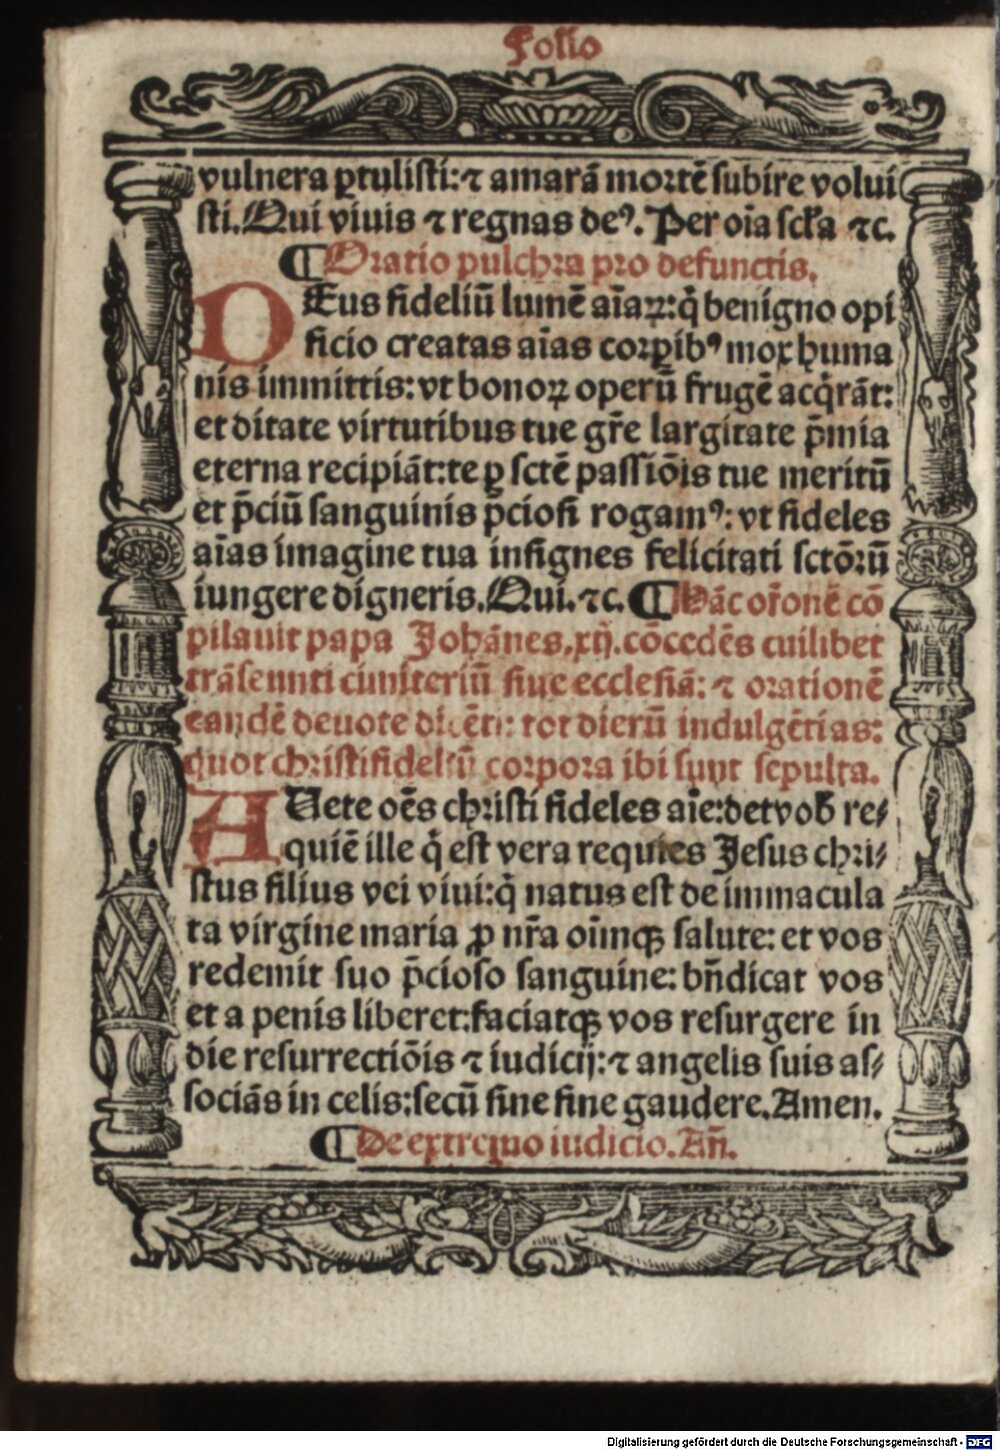 Folio
vulnera ꝑtulisti: ⁊ amarā mortē subire volui
sti. Qui viuis ⁊ regnas deꝰ. Per oīa scľa ⁊c.
¶ Oratio pulchra pro defunctis.
DEus fideliū lumē aīaꝝ: q̇ benigno opi
ficio creatas aīas corꝑibꝰ mox huma
nis immittis: vt bonoꝝ operū frugē acq̇rāt:
et ditate virtutibus tue gr̄e largitate p̄mia
eterna recipiāt: te ꝑ sctē passiōis tue meritū
et p̄ciū sanguinis p̄ciosi rogamꝰ: vt fideles
aīas imagine tua insignes felicitati sctōrū
iungere digneris. Qui. ⁊c. ¶ Hāc or̄onē cō
pilauit papa Johānes. xij. cōcedēs cuilibet
trāseunti cimiteriū siue ecclesiā: ⁊ orationē
eandē deuote dicēti: tot dierū indulgētias:
quot christifideliū corpora ibi sunt sepulta.
AUete oēs christi fideles aīe: det vob̄ re⸗
quiē ille q̇ est vera requies Jesus chri⸗
stus filius vei viui: q̇ natus est de immacula
ta virgine maria ꝓ nr̄a oīmqꝫ salute: et vos
redemit suo p̄cioso sanguine: bn̄dicat vos
et a penis liberet: faciatqꝫ vos resurgere in
die resurrectiōis ⁊ iudicij: ⁊ angelis suis as⸗
sociās in celis: secū sine fine gaudere. Amen.
¶ De extremo iudicio. Añ.
Digitalisierung gefördert durch die Deutsche Forschungsgemeinschaft - DFG